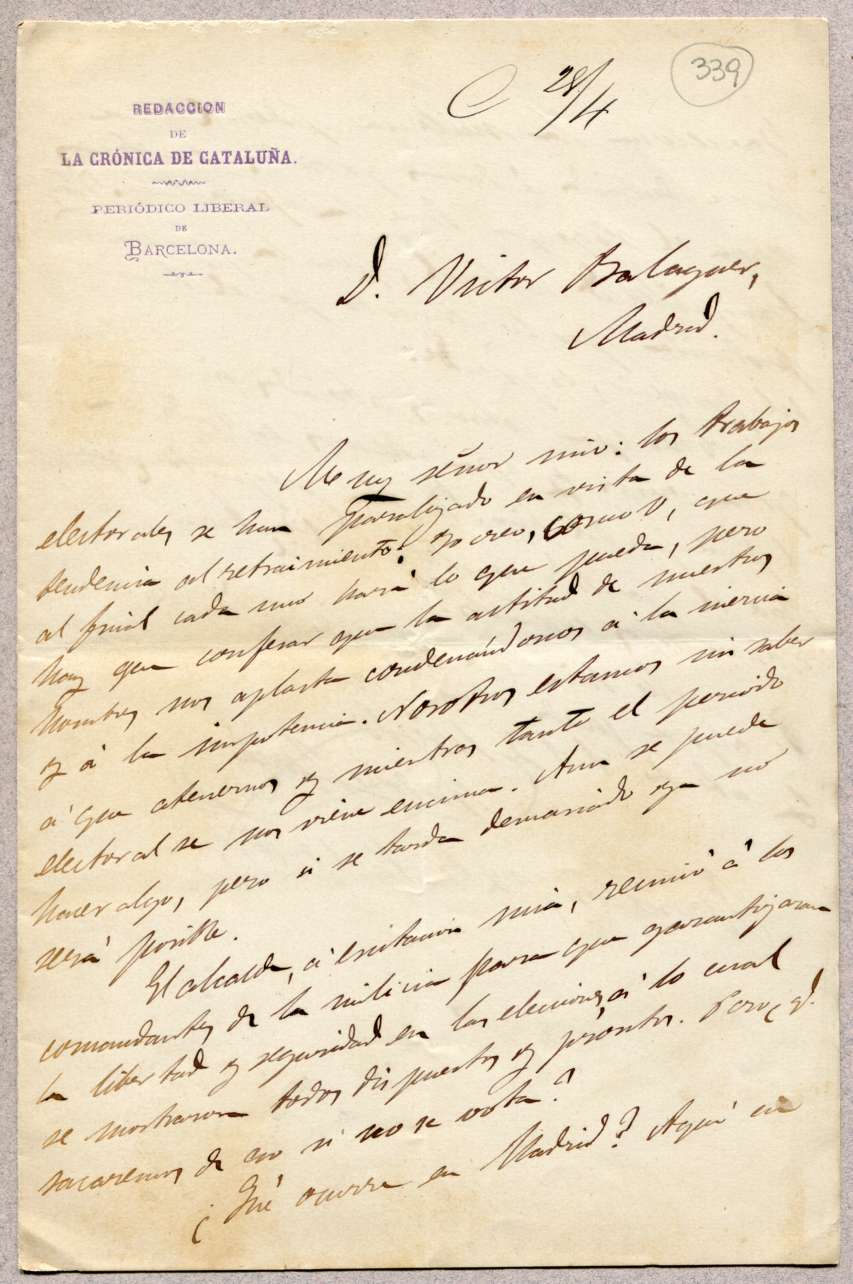 C 28/4
339
REDACCION
DE
LA CRÓNICA DE CATALUÑA.
PERIÓDICO LIBERAL
DE
BARCELONA.
D. Victor Balaguer,
Madrid.
Muy señor mio: los trabajos
electorales se han paralizado en vista de la
tendencia al retraimiento. Yo creo, como V, que
al final cada uno hará lo que pueda, pero
hay que confesar que la actitud de nuestros
hombres nos aplasta condenándonos á la inercia
y á la impotencia. Nosotros estamos sin saber
á que atenernos y mientras tanto el periodo
electoral se nos viene encima. Aun se puede
hacer algo, pero si se tarda demasiado ya no
será posible.
El alcalde, á escitacion mia, reunió á los
comandantes de la milicia para que garantizaran
la libertad y seguridad en las elecciones á lo cual
se mostraron todos dispuestos y prontos. Pero ¿q.
sacaremos de eso si no se vota?
¿Qué ocurre en Madrid? Aquí en